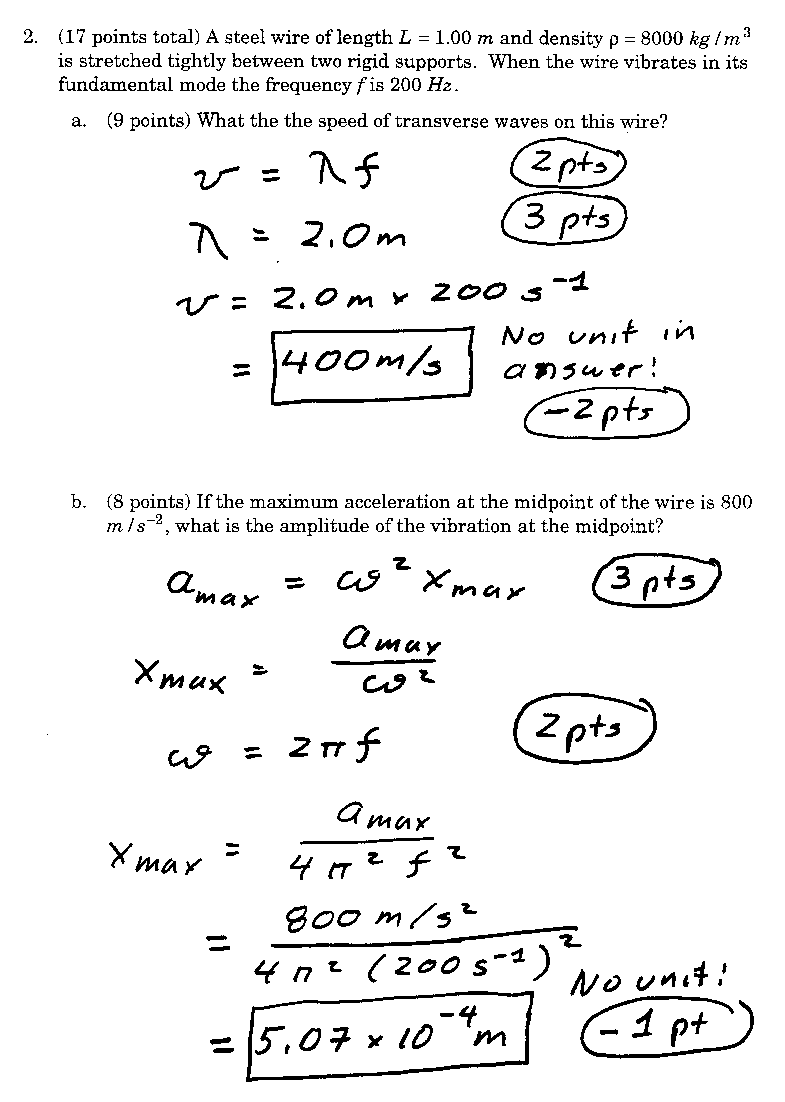 2. (17 points total) A steel wire of length L = 1.00 m and density ρ = 8000 kg / m³
is stretched tightly between two rigid supports. When the wire vibrates in its
fundamental mode the frequency f is 200 Hz.
a. (9 points) What the the speed of transverse waves on this wire?
v = λf 2 pts
λ = 2.0 m 3 pts
v = 2.0 m × 200 s⁻¹
= 400 m/s No unit in
answer!
-2 pts
b. (8 points) If the maximum acceleration at the midpoint of the wire is 800
m / s⁻², what is the amplitude of the vibration at the midpoint?
a max = ω² x max 3 pts
x max = a max / ω²
ω = 2πf 2 pts
x max = a max / 4π² f²
= 800 m/s² / 4π² (200 s⁻¹)²
No unit!
= 5.07 × 10⁻⁴ m -1 pt